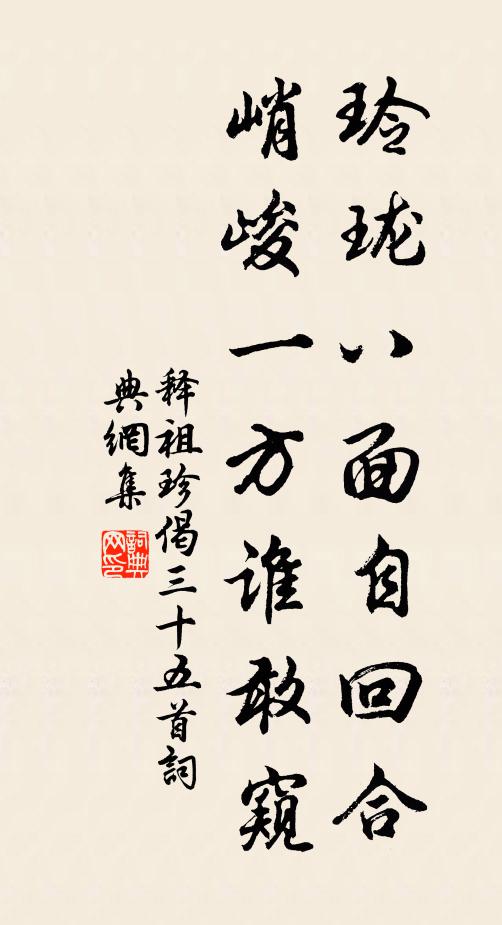 玲珑八面自回合
峭峻一方谁敢窥
释祖珍偈三十五首詞
典網集
詞典网印